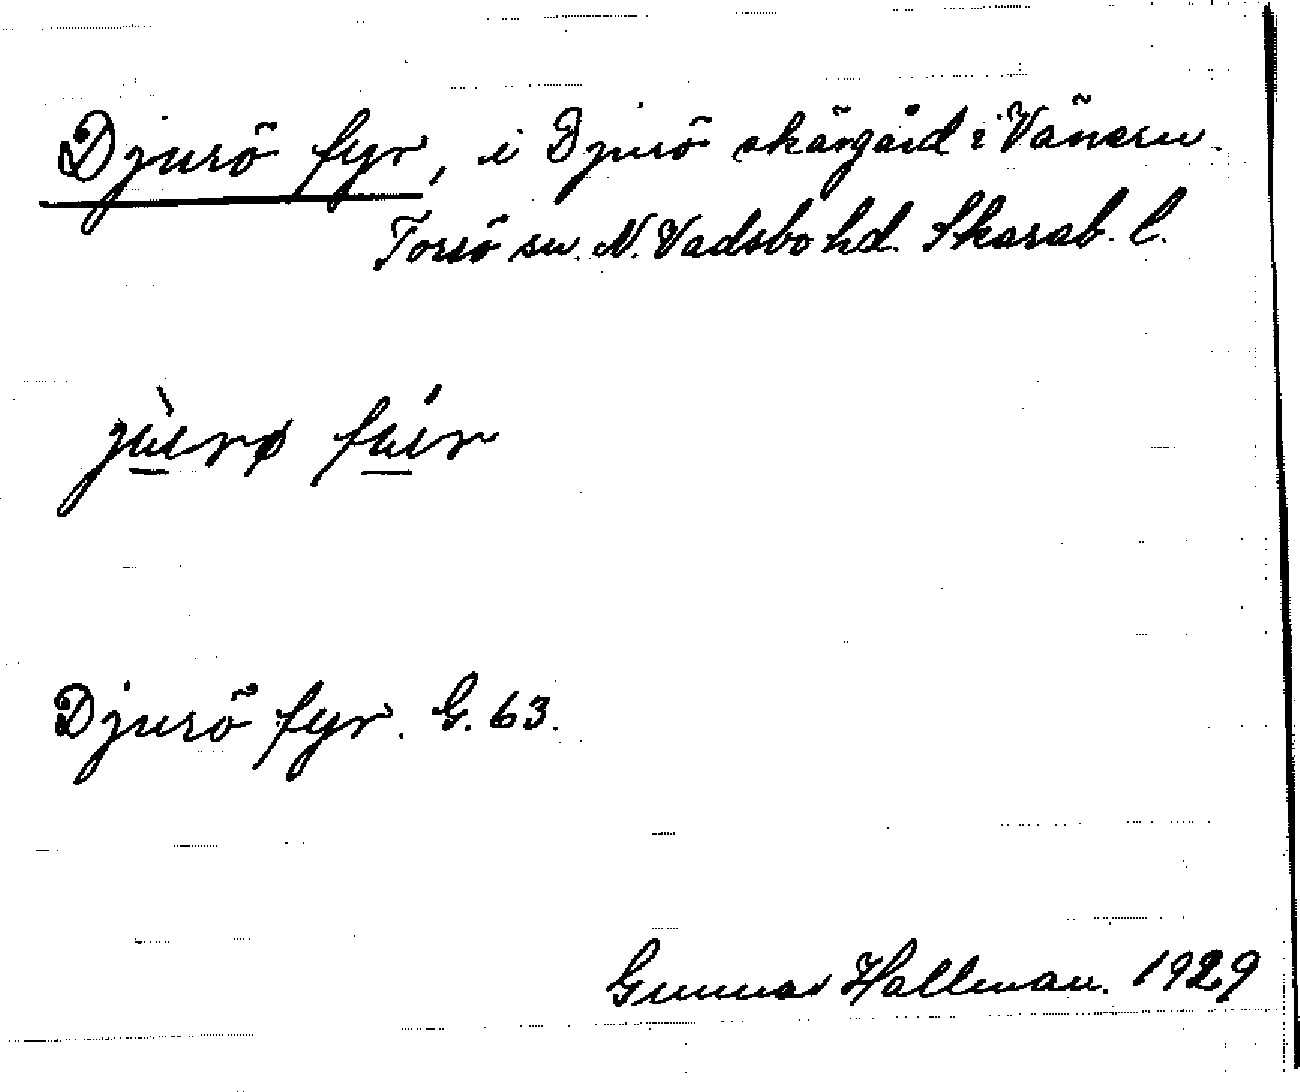 Djurö fyr, i Djurö skärgård i Vänern.
Torsö sn. N. Vadsbo hd. Skarab. l.
jùrø fúr
Djurö fyr. G. 63.
Gunnar Hallman. 1929